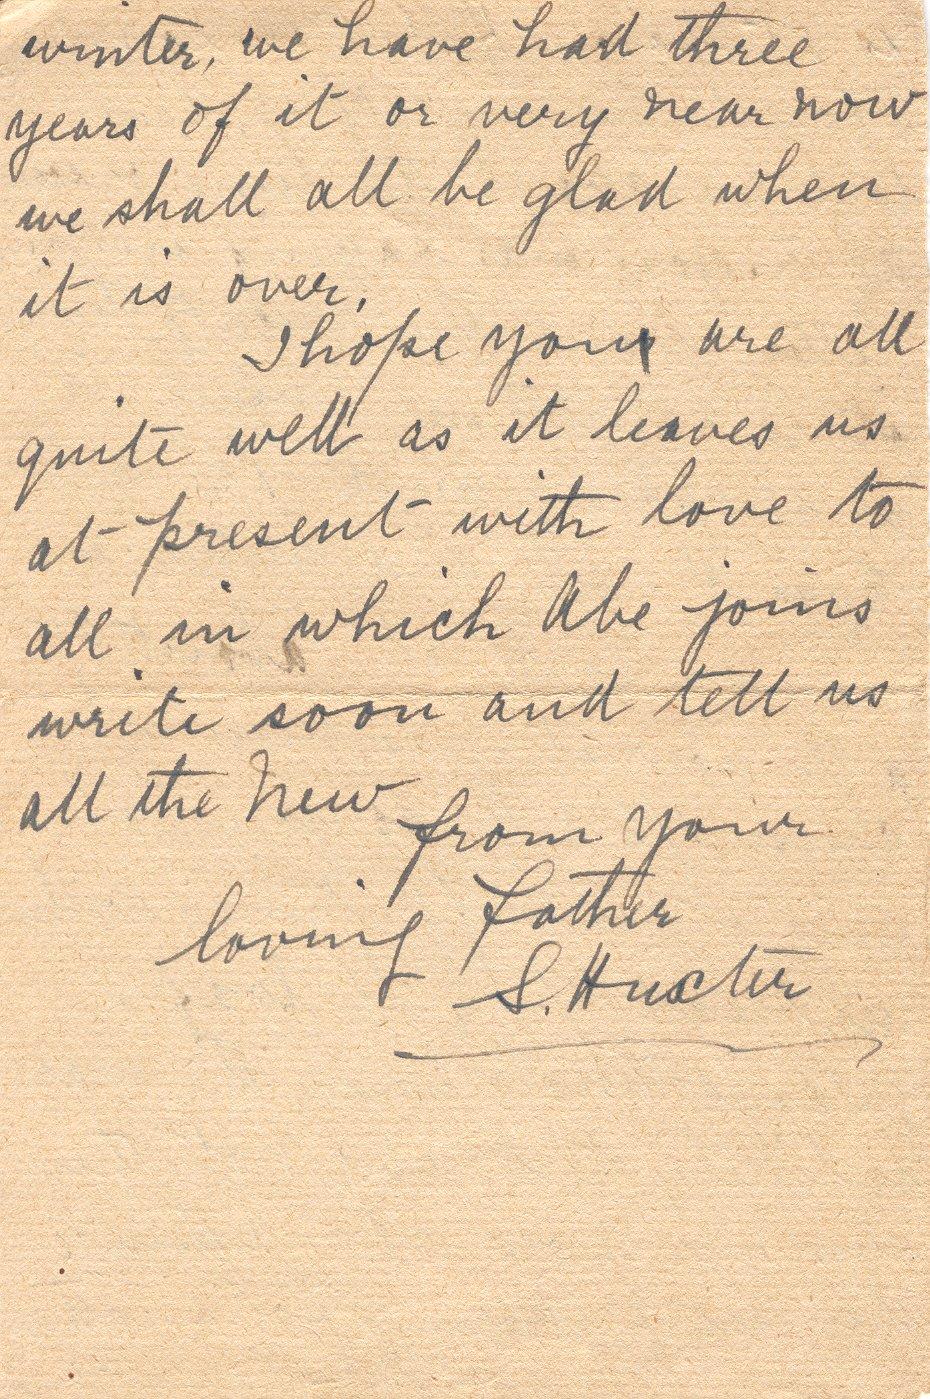 winter, we have had three
years of it or very near now
we shall all be glad when
it is over.
I hope you are all
quite well as it leaves us
at present with love to
all in which Abe joins
write soon and tell us
all the New
from your
loving Father
S. Huxter